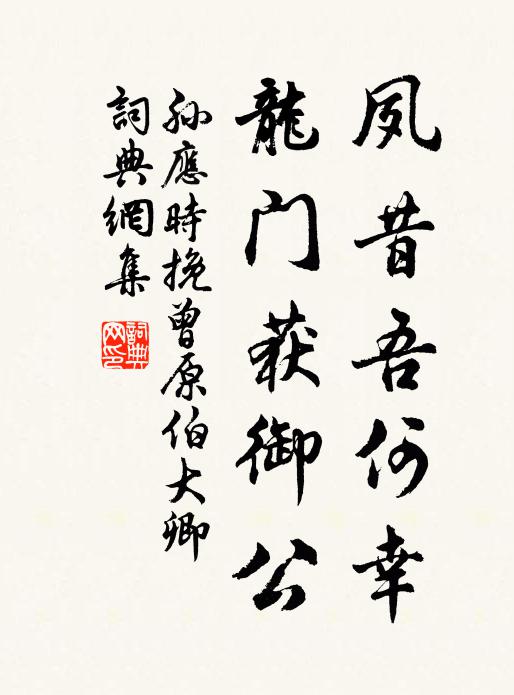 夙昔吾何幸
龍门获御公
孙應時挽曾原伯大卿
詞典網集
詞典网印